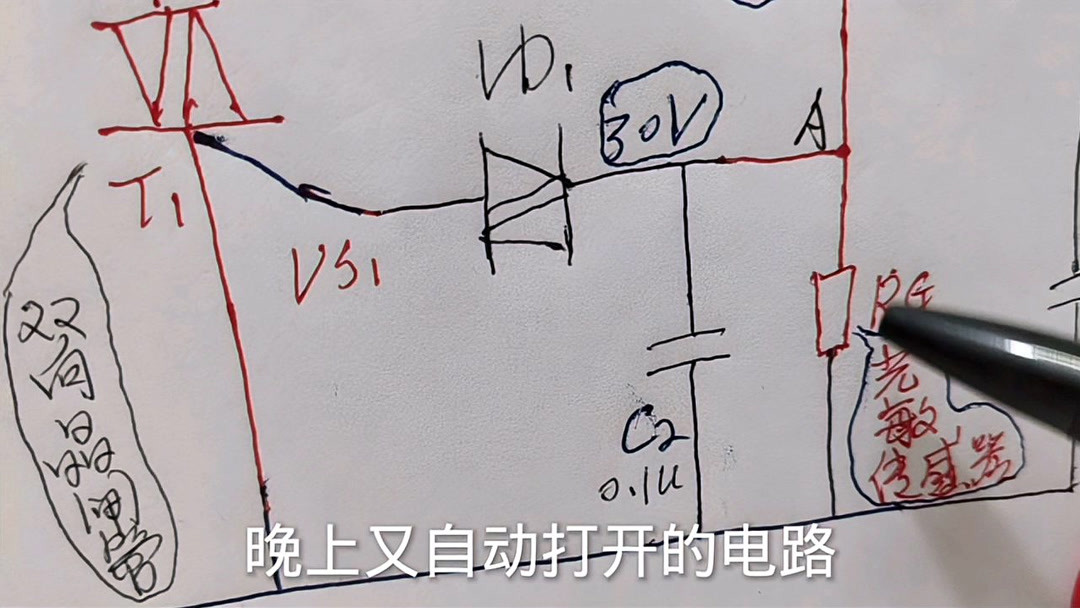 VD1
30V
A
T1
VS1
双向晶闸管
C2
0.1u
光敏传感器
晚上又自动打开的电路